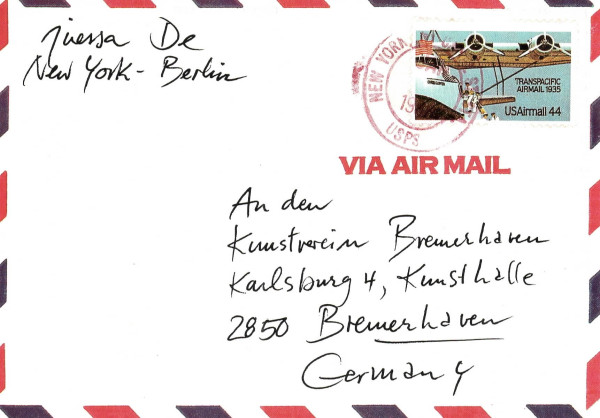 De
New York - Berlin
NEW YORK
USPS
TRANSPACIFIC
AIRMAIL 1935
USAirmail 44
VIA AIR MAIL
An den
Kunstverein Bremerhaven
Karlsburg 4, Kunsthalle
2850 Bremerhaven
Germany